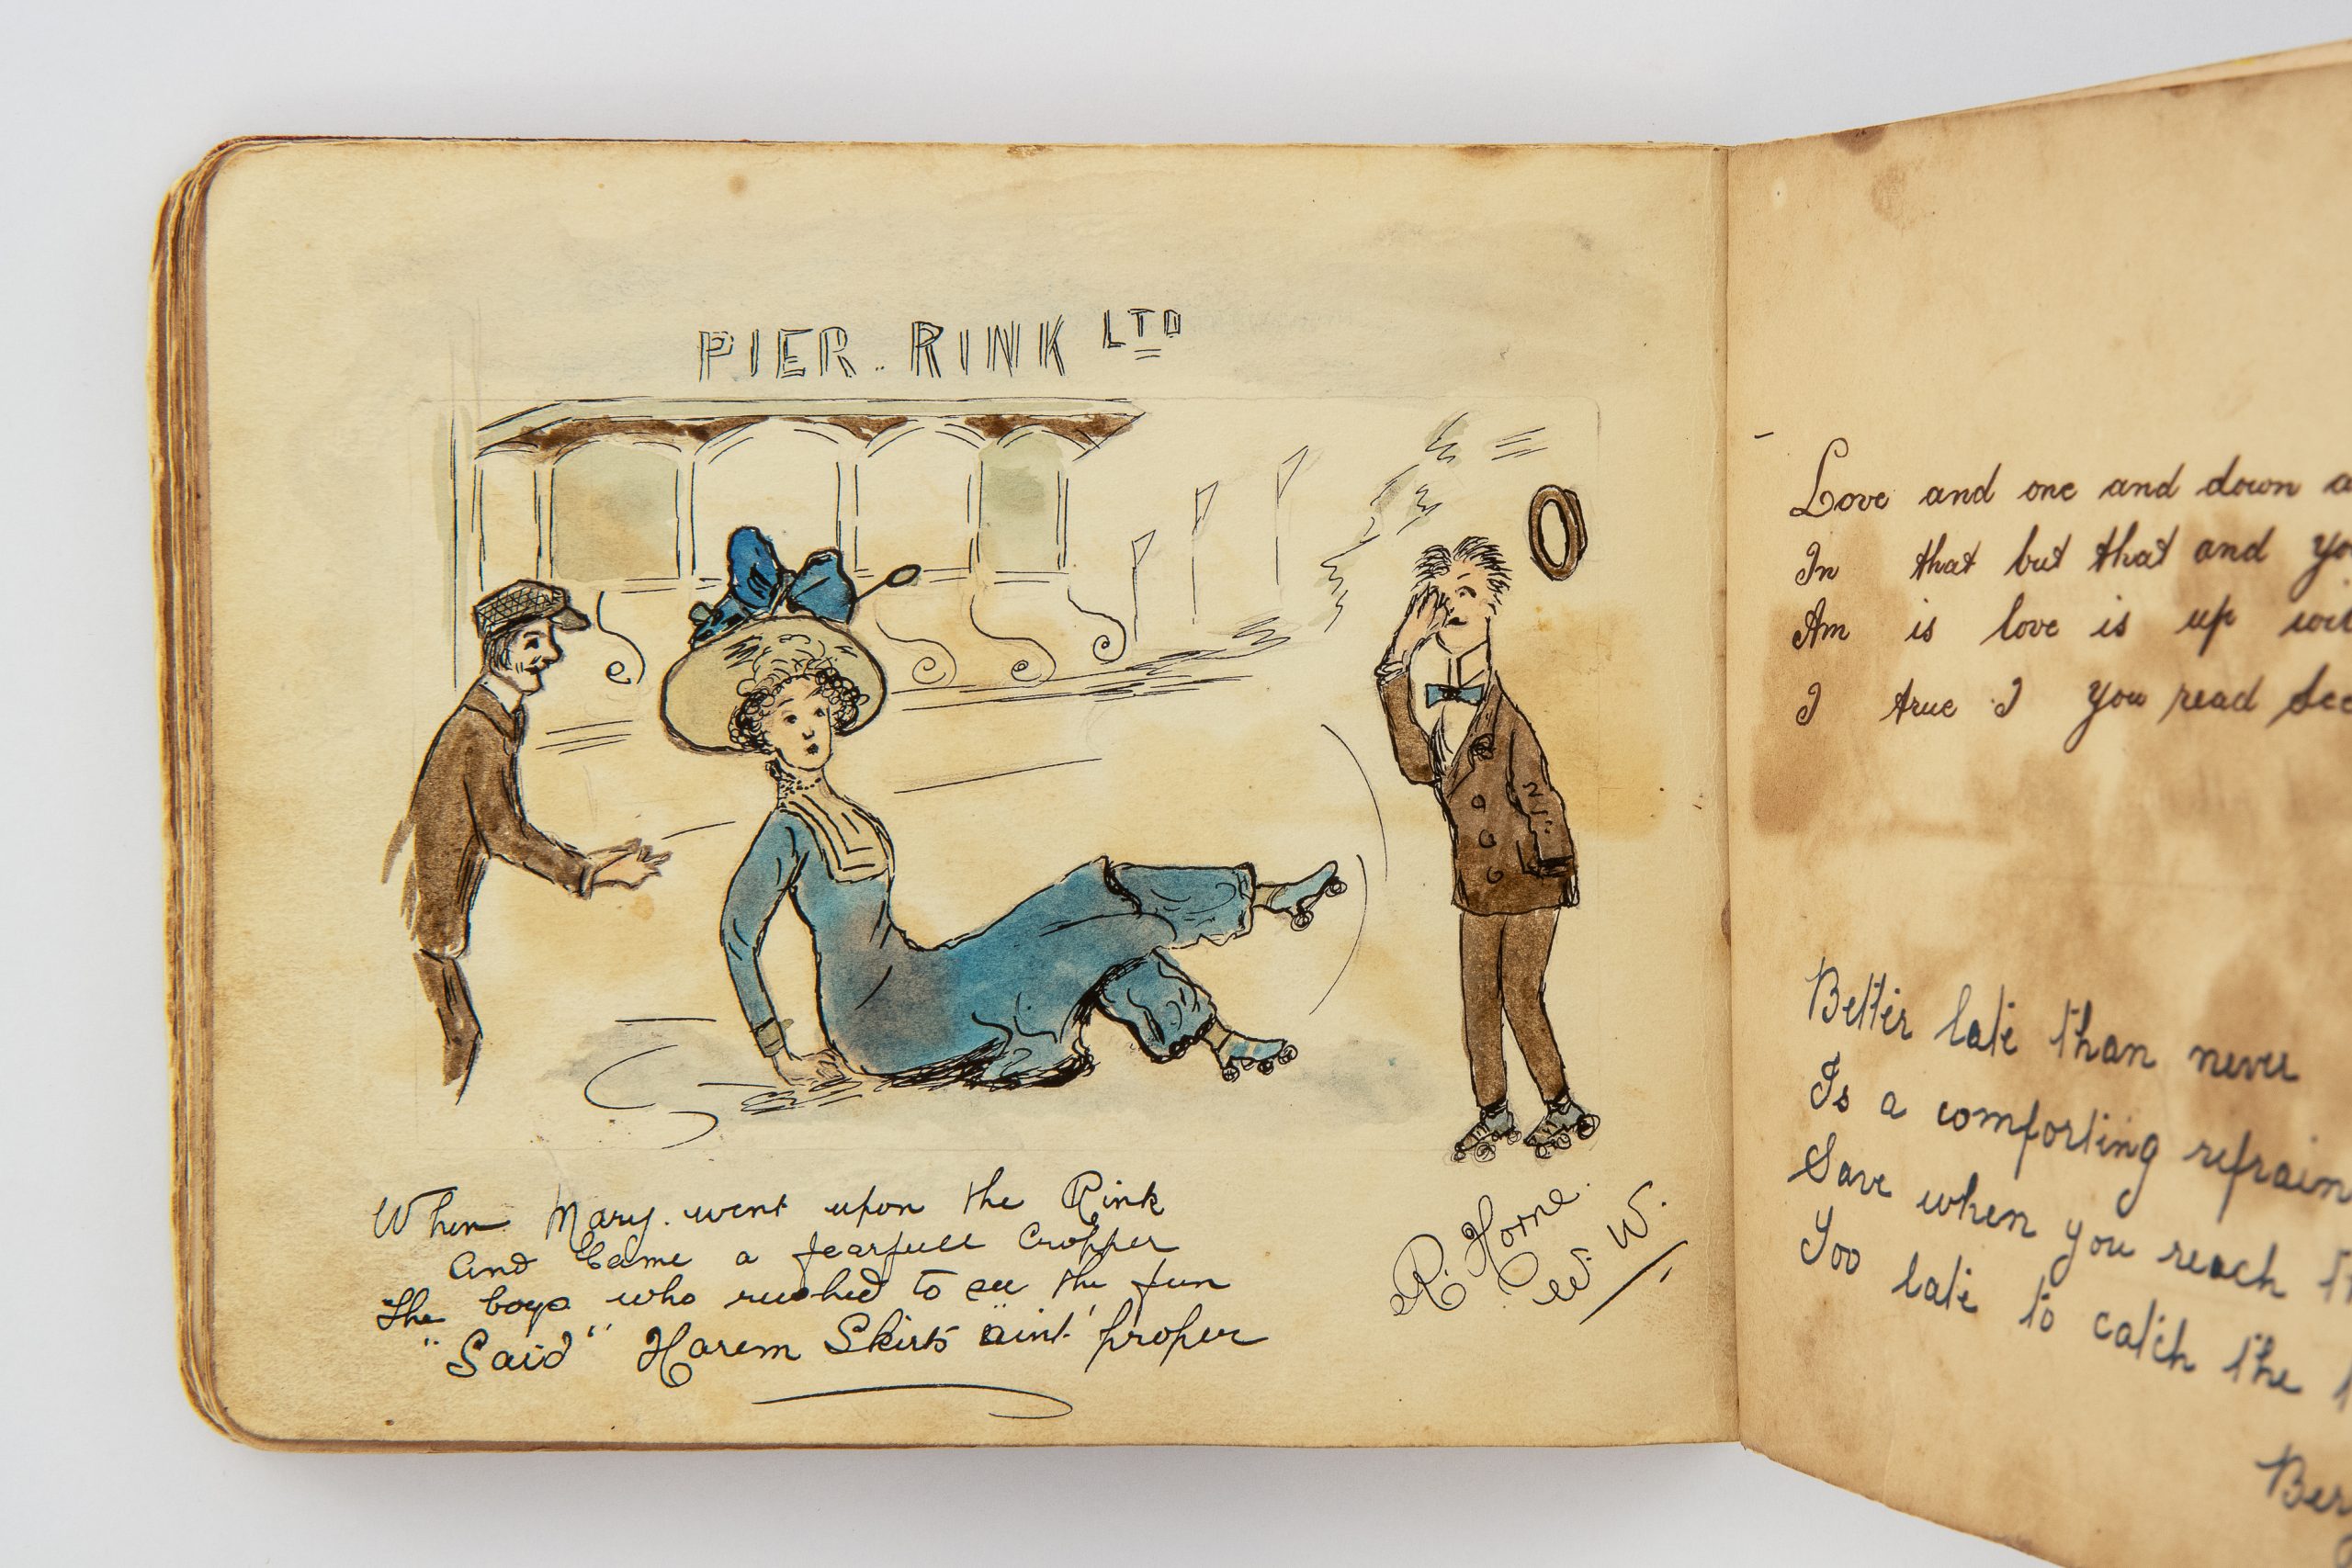 PIER. RINK LTD
When Mary. went upon the Rink
And Came a fearfull Cropper
The boys who rushed to see the fun
"Said" Harem Skirts "aint' proper
R. Horne.
W. W.
Love and one and down
In that but that and
Am is love is up
I true I you read See
Better late than never
Is a comforting refrain
Save when you reach
Too late to catch the